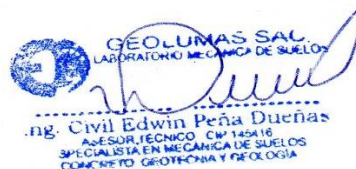 GEOLUMAS SAC.
LABORATORIO MECANICA DE SUELOS
Ing. Civil Edwin Peña Dueñas
ASESOR TECNICO CIP 145416
ESPECIALISTA EN MECANICA DE SUELOS
CONCRETO GEOTECNIA Y GEOLOGIA